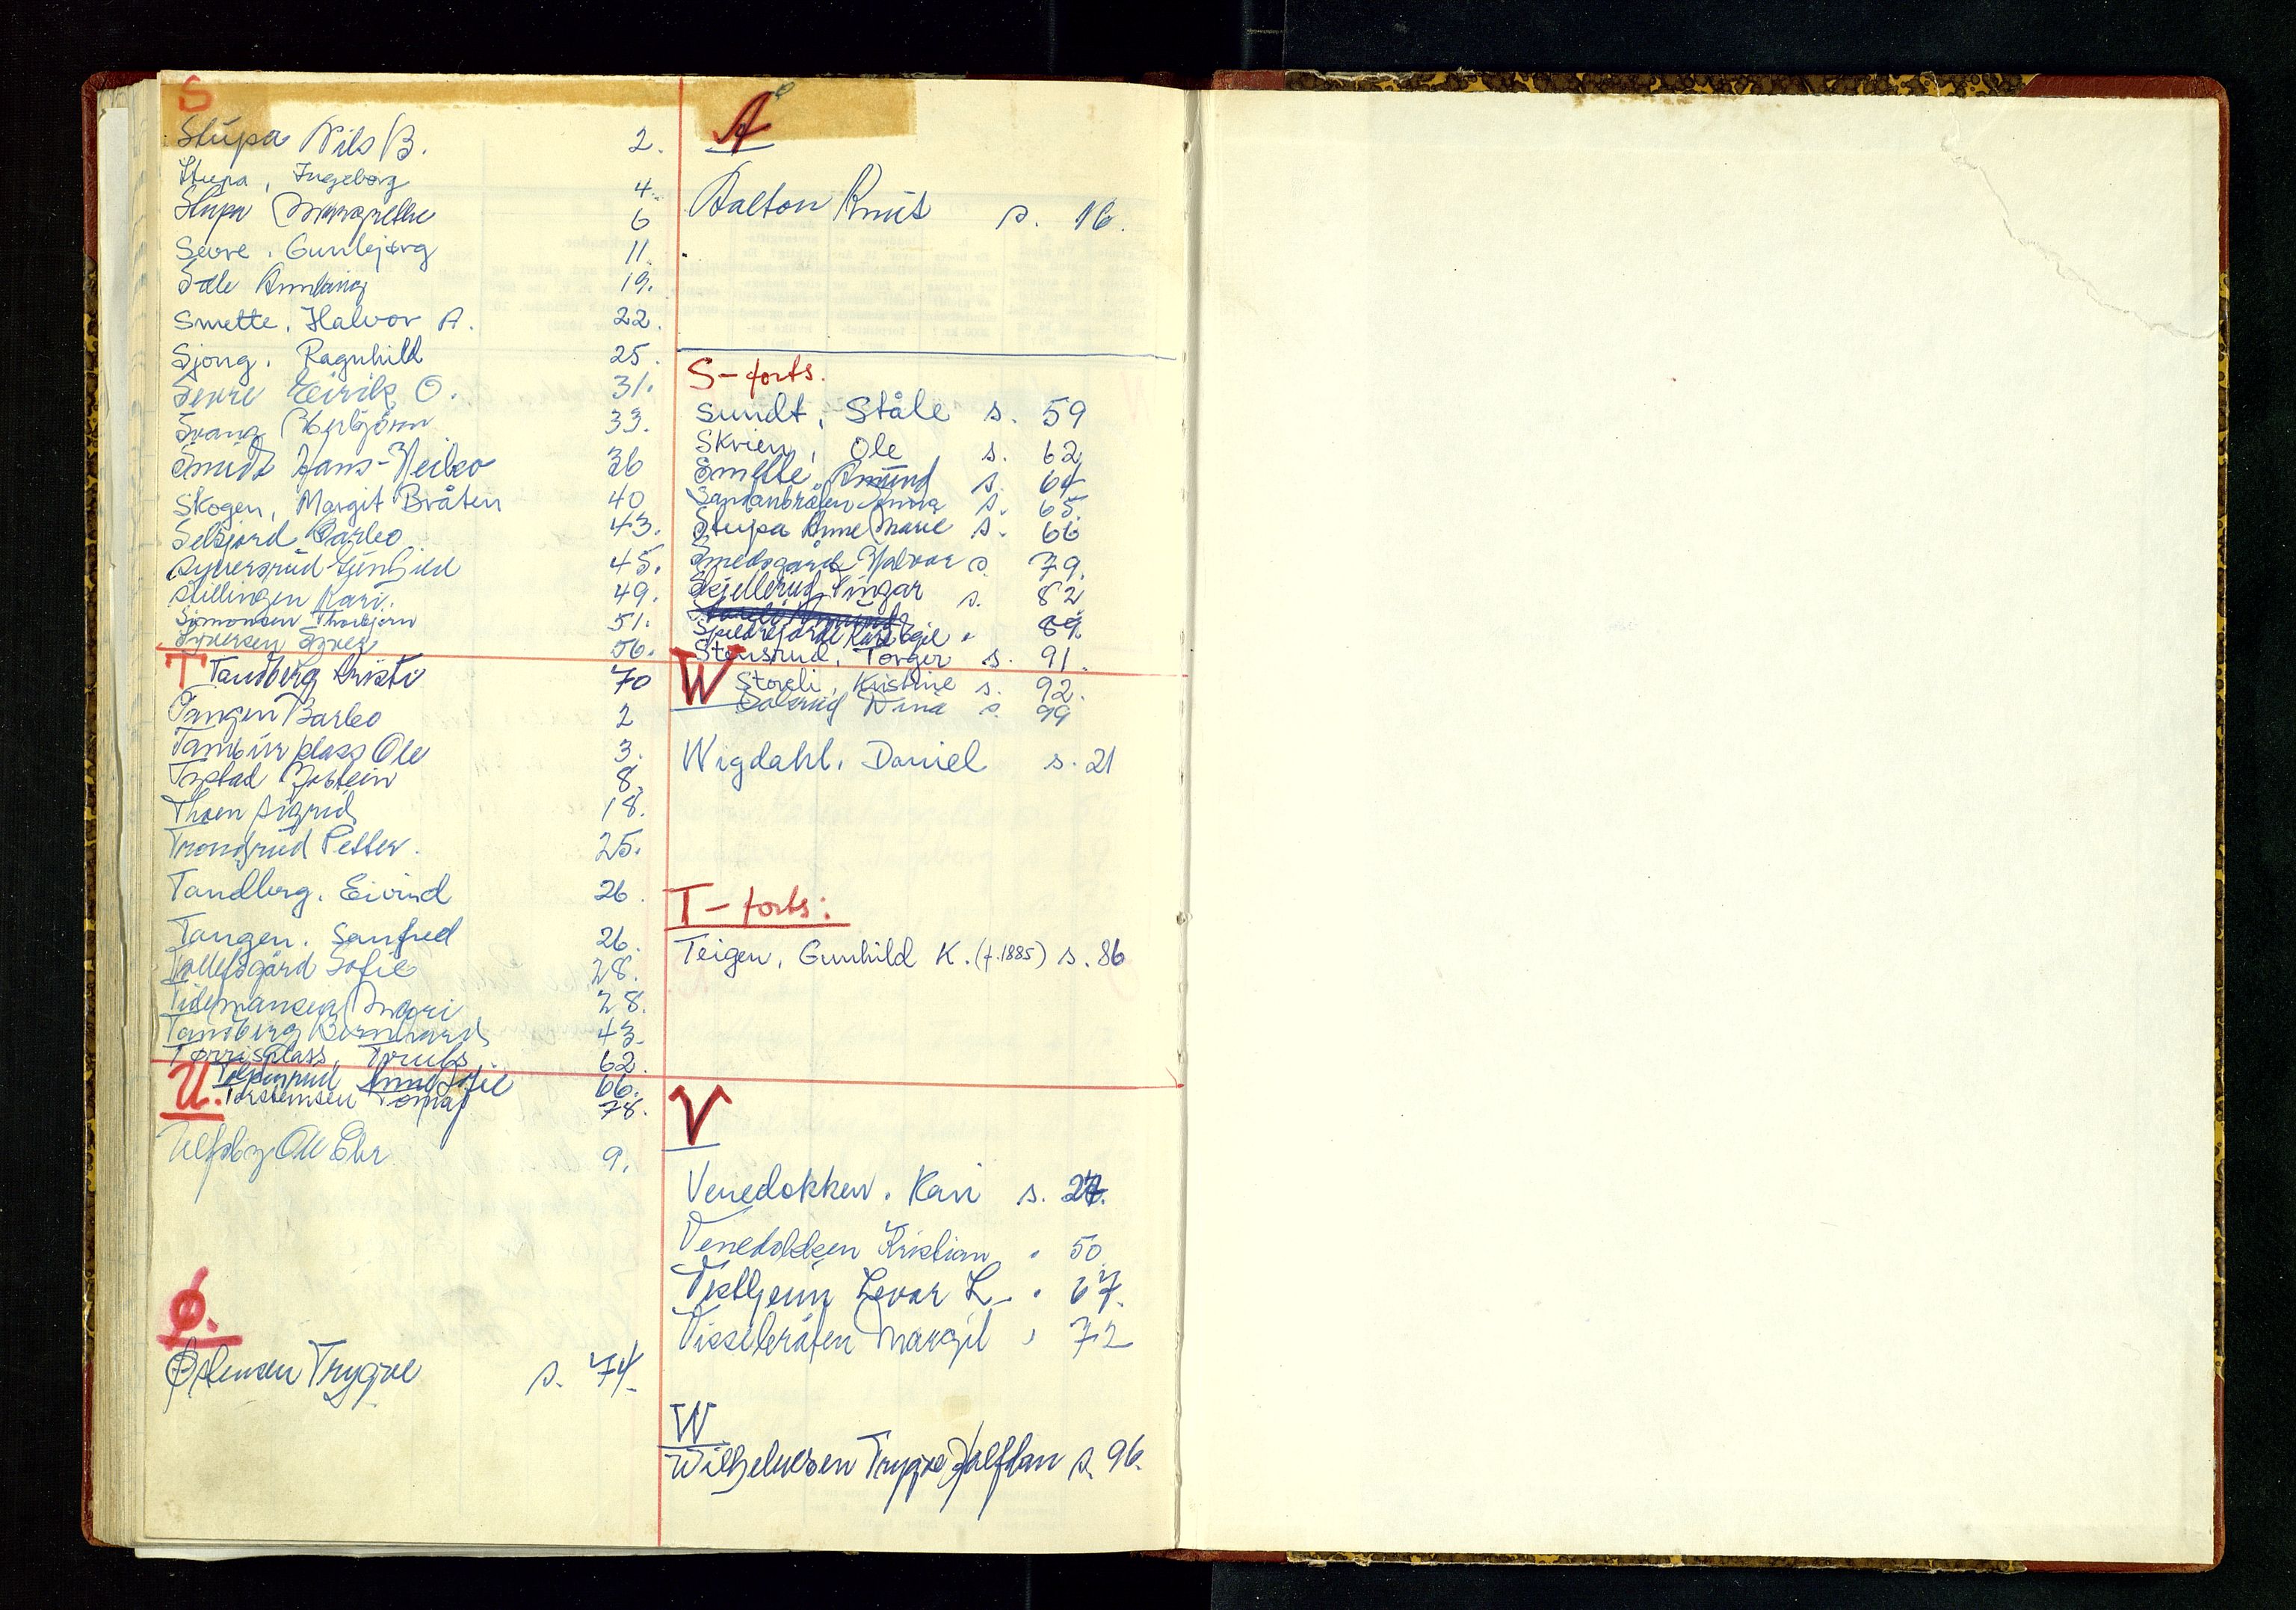 S
Stupa Nils B. 2.
Stupa, Ingeborg 4.
Stupa Margrethe 6
Sevre, Gunbjørg 11.
Sæle Annbjørg 19.
Smette, Halvor A. 22.
Sjong, Ragnhild 25.
Sevre Eirik O. 31.
Svang Herbjörn 33.
Smidt Hans-Veibeo 36
Skogen, Margit Bråten 40
Selsjord Barbo 43.
Syversrud Gunhild 45.
Stillingen Kari. 49.
Simonsen Thorbjørn 51.
Syversen Syver 56.
T Tandberg Kristi 70
Tangen Barbo 2
Tamburplass Ole 3.
Tystad Jostein 8.
Thoen Sigrid 18.
Trondrud Petter. 25.
Tandberg, Eivind 26.
Tangen, Sanfred 26.
Tollefsgård Sofie 28.
Tidemansen Mari 28.
Tandberg Bernhard 43.
Tørrisplass, Truls 62.
U. Tolpinrud Anne Sofie 66.
Torsteinsen Tomas 78.
Ulfsby Ole Chr. 9.
Ø.
Østensen Trygve s. 74.
Å
Aalton Knut s. 16.
S-forts.
Sundt, Ståle s. 59
Skrien, Ole s. 62
Smette, Amund s. 64
Sandanbråten Anna s. 65.
Stupa Anne Marie s. 66
Smedsgård Halvor s. 79.
Skjellerud, Ingar s. 82
Kåre Egil " 89.
Stensrud, Torger s. 91.
W Storeli, Kristine s. 92.
Dokrud Nina s. 99
Wigdahl, Daniel s. 21
T-forts:
Teigen, Gunhild K. (f. 1885) s. 86
V
Venedokken, Kari s. 27.
Venedokken Kristian " 50
Levor L. " 67.
Visselbråten Margit " 72
W
Wilhelmsen Trygve Halfdan s. 96.